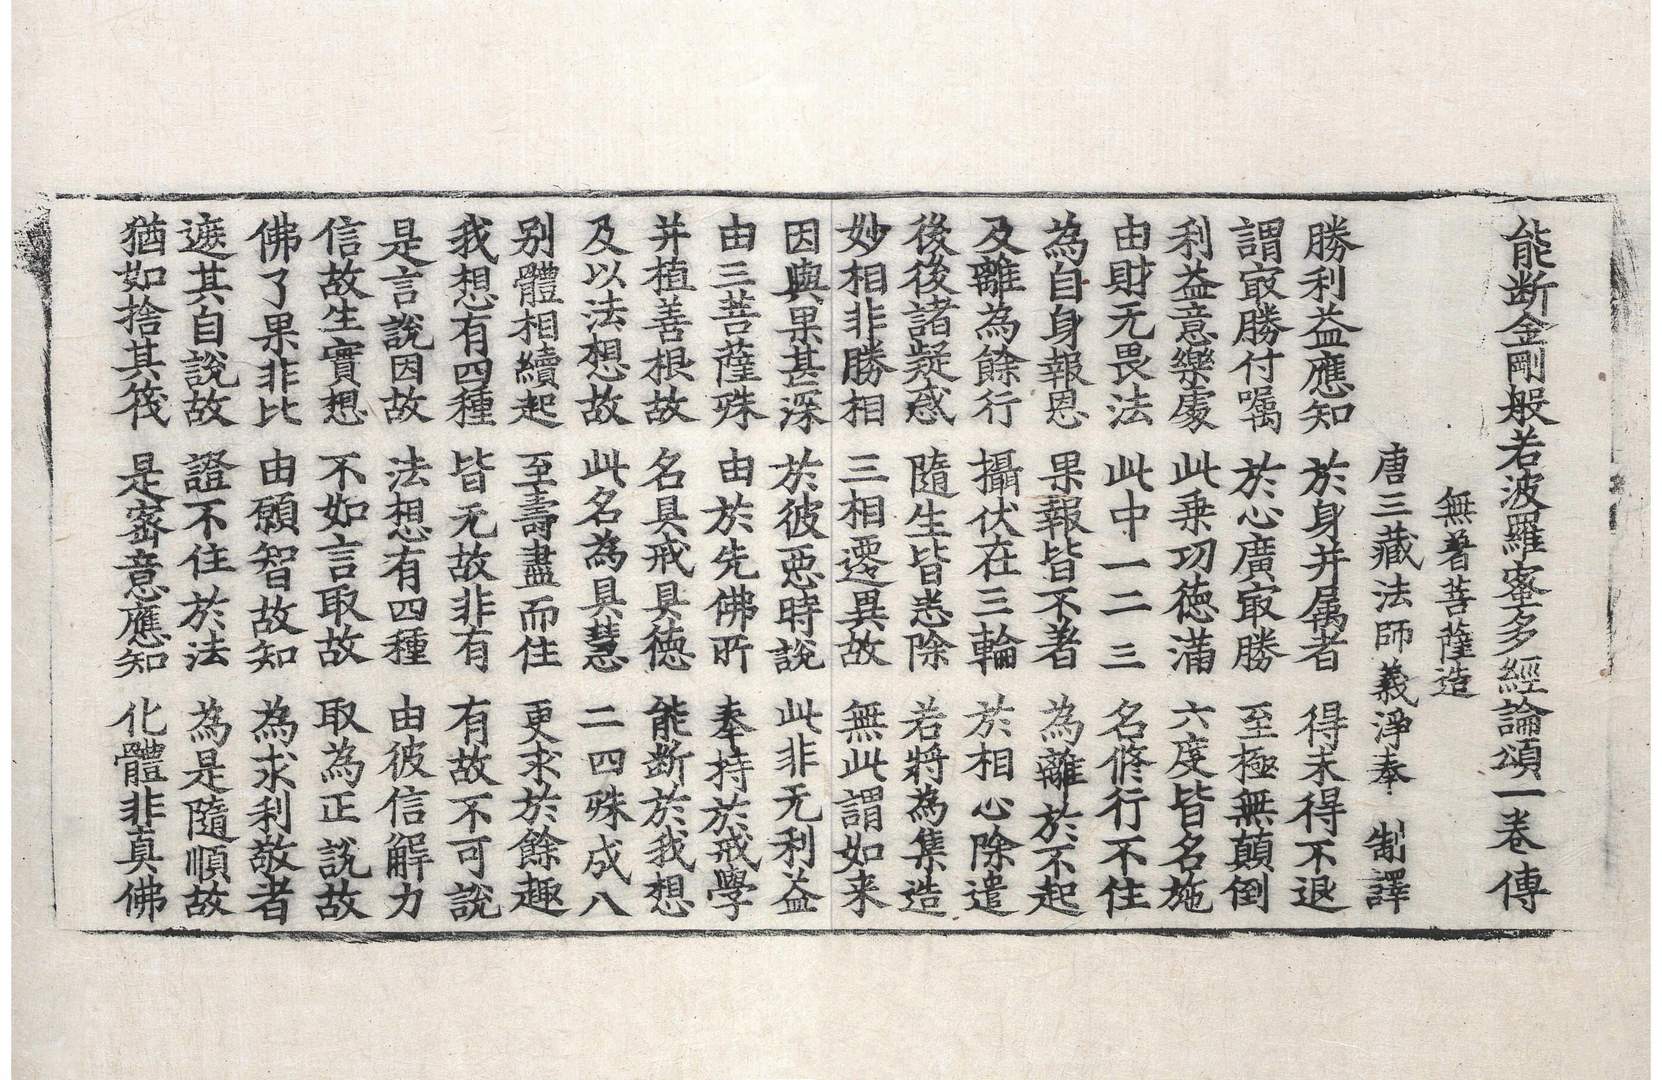 能断金剛般若波羅蜜多經論頌一卷 傳
無著菩薩造
唐三藏法師義淨奉 制譯
勝利益應知 於身并属者 得未得不退
謂㝡勝付囑 於心廣㝡勝 至極無顛倒
利益意樂處 此乗功徳滿 六度皆名施
由財无畏法 此中一二三 名修行不住
為自身報恩 果報皆不著 為離於不起
及離為餘行 攝伏在三輪 於相心除遣
後後諸疑惑 隨生皆悉除 若將為集造
妙相非勝相 三相遷異故 無此謂如来
因與果甚深 於彼惡時說 此非无利益
由三菩薩殊 由於先佛所 奉持於戒學
并植善根故 名具戒具徳 能断於我想
及以法想故 此名為具慧 二四殊成八
别體相續起 至壽盡而住 更求於餘趣
我想有四種 皆无故非有 有故不可說
是言說因故 法想有四種 由彼信解力
信故生實想 不如言取故 取為正說故
佛了果非比 由願智故知 為求利敬者
遮其自說故 證不住於法 為是隨順故
猶如捨其筏 是密意應知 化體非真佛